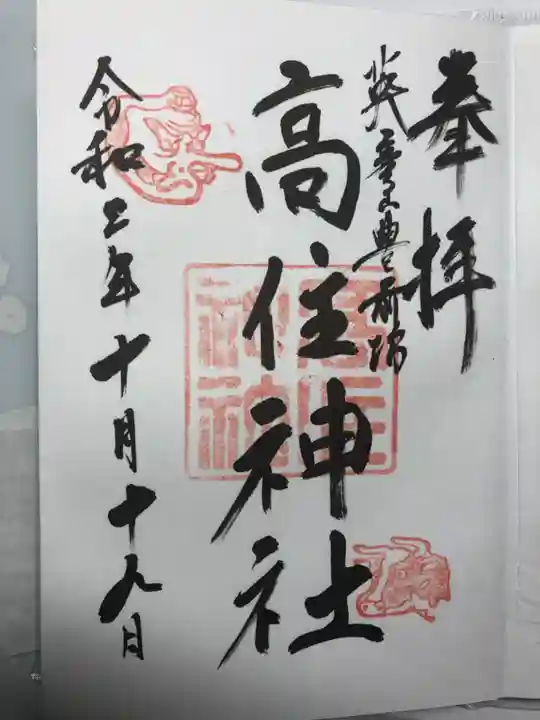 奉拝
英彦山豊前坊
高住神社
高住神社
令和二年十月十九日